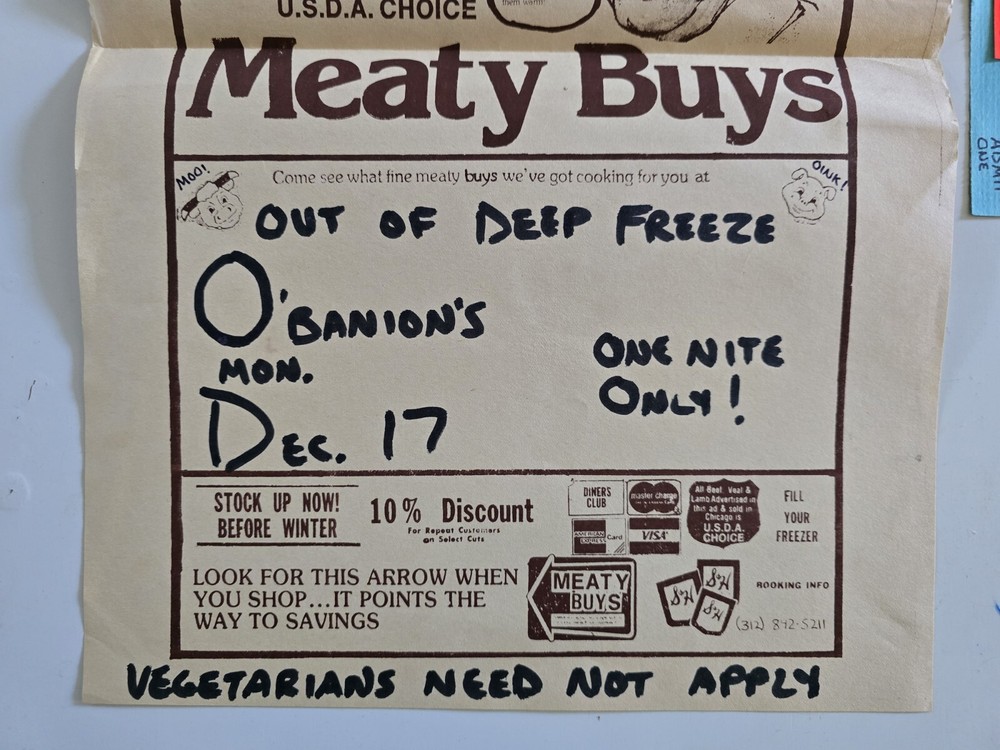 U.S.D.A. CHOICE
them warm!
Meaty Buys
MOO!
OINK!
Come see what fine meaty buys we've got cooking for you at
OUT OF DEEP FREEZE
O'BANION'S
MON.
DEC. 17
ONE NITE
ONLY!
STOCK UP NOW!
BEFORE WINTER
10% Discount
For Repeat Customers
on Select Cuts
DINERS
CLUB
master charge
AMERICAN
EXPRESS Card
VISA
All Beef Veal &
Lamb Advertised in
this ad & sold in
Chicago is
U.S.D.A.
CHOICE
FILL
YOUR
FREEZER
LOOK FOR THIS ARROW WHEN
YOU SHOP...IT POINTS THE
WAY TO SAVINGS
MEATY
BUYS
S&H
S&H
S&H
BOOKING INFO
(312) 842-5211
VEGETARIANS NEED NOT APPLY
ADMIT
ONE